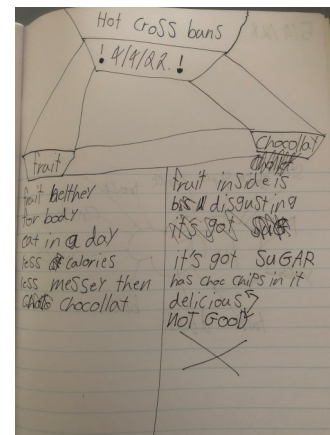 Hot Cross buns
! 4/4/22. !
fruit
fruit helthey
for body
eat in a day
less calories
less messer then
chocollat
Chocollat
fruit inside is
disgusting
it's got
it's got SuGAR
has choc chips in it
delicious
NOT GOOD